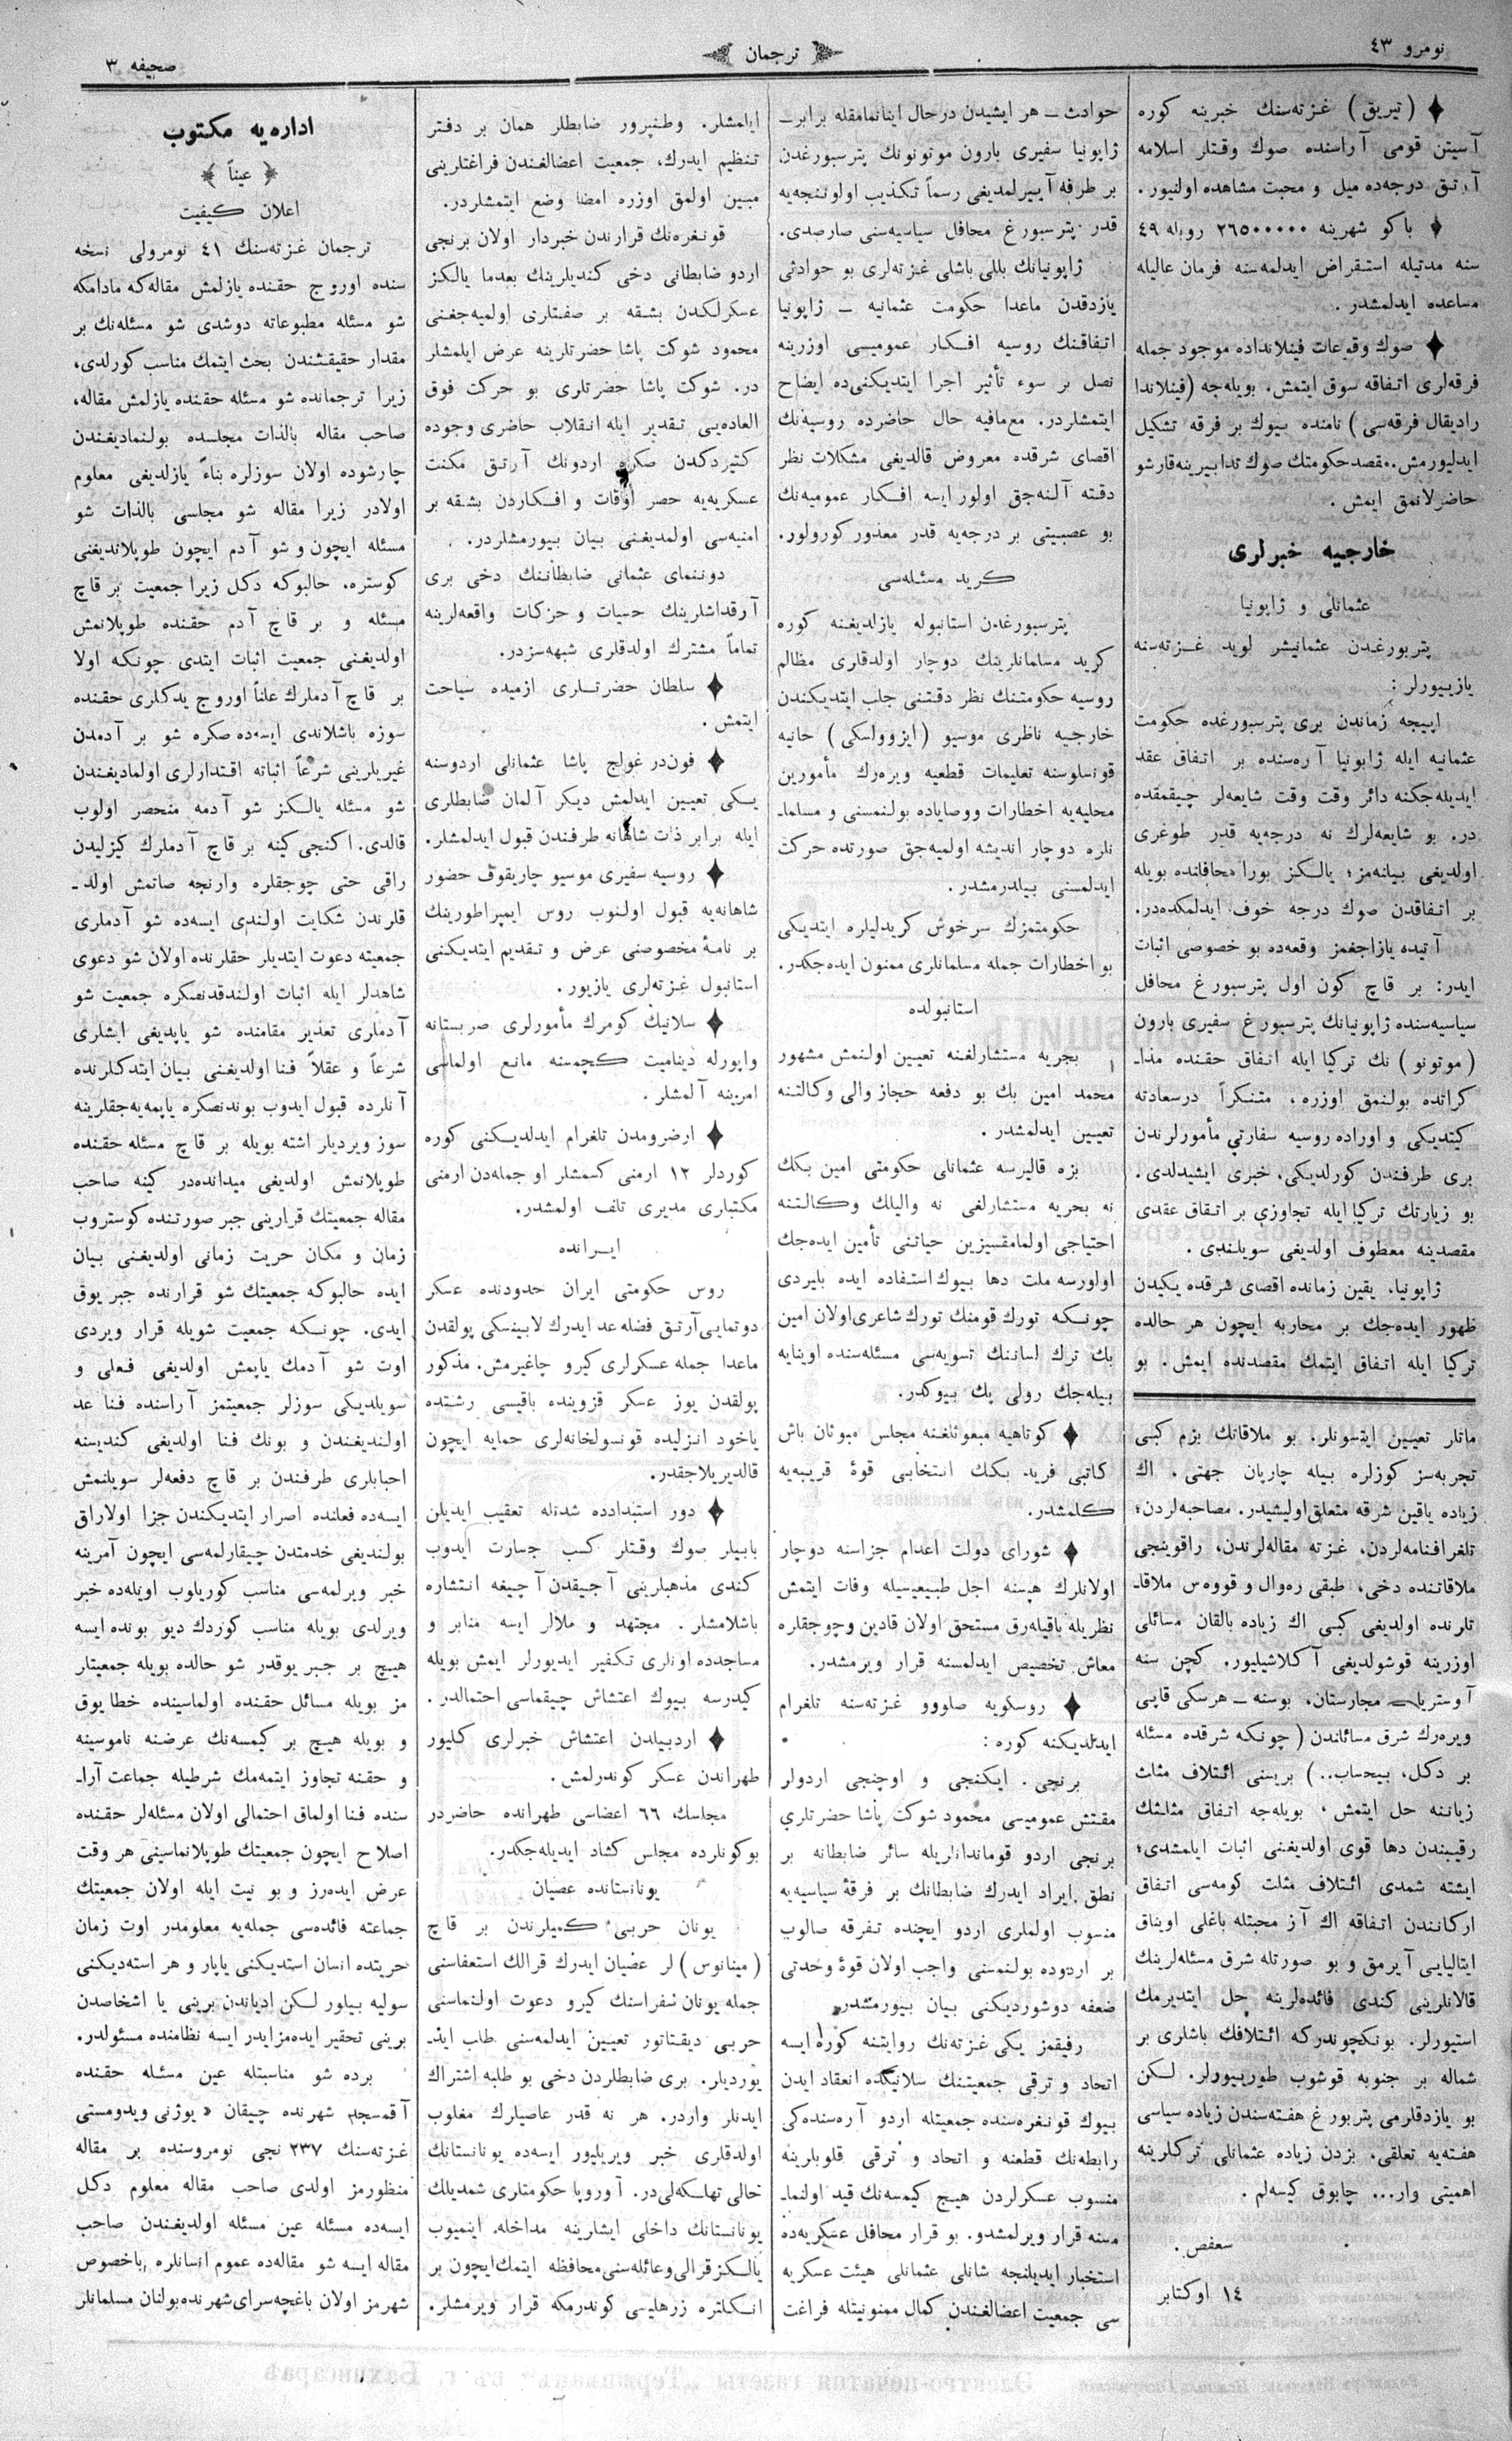 نومرو ٤٣
ترجمان
صحيفه ٣
(تيريق) غزته‌سنك خبرينه كوره
آسيتن قومى آراسنده صوك وقتلر اسلامه
آرتق درجه‌ده ميل و محبت مشاهده اولنيور.
باكو شهرينه ٢٦٥٠٠٠٠٠ روبله ٤٩
سنه مدتيله استقراض ايدلمه‌سنه فرمان عاليله
مساعده ايدلمشدر.
صوك وقوعات فينلانداده موجود جمله
فرقه‌لرى اتفاقه سوق ايتمش. بويله‌جه (فينلاندا
راديقال فرقه‌سى) نامنده بيوك بر فرقه تشكيل
ايدليورمش. مقصد حكومتك صوك تدابيرينه قارشو
حاضرلانمق ايمش.
خارجيه خبرلرى
عثمانلى و ژاپونيا
پتربورغدن عثمانيشر لويد غزته‌سنه
يازييورلر:
اپيجه زماندن برى پترسبورغده حكومت
عثمانيه ايله ژاپونيا آره‌سنده بر اتفاق عقد
ايديله‌جكنه دائر وقت وقت شايعه‌لر چيقمقده
در. بو شايعه‌لرك نه درجه‌يه قدر طوغرى
اولديغى بيلنه‌مز؛ يالكز بورا محافلنده بويله
بر اتفاقدن صوك درجه خوف ايدلمكده‌در.
آتيده يازاجغمز وقعه‌ده بو خصوصى اثبات
ايدر: بر قاچ كون اول پترسبورغ محافل
سياسيه‌سنده ژاپونيانك پترسبورغ سفيرى بارون
(موتونو) نك تركيا ايله اتفاق حقنده مذا‌ـ
كراتده بولنمق اوزره، متنكراً درسعادته
كيتديكى و اوراده روسيه سفارتي مأمورلرندن
برى طرفندن كورلديكى. خبرى ايشيدلدى.
بو زيارتك تركيا ايله تجاوزي بر اتفاق عقدى
مقصدينه معطوف اولديغى سويلندى.
ژاپونيا، يقين زمانده اقصاى شرقده يكيدن
ظهور ايده‌جك بر محاربه ايچون هر حالده
تركيا ايله اتفاق ايتمك مقصدنده ايمش. بو
ماتلر تعيين ايتسونلر. بو ملاقاتك بزم كبى
تجربه‌سز كوزلره بيله چارپان جهتى. اك
زياده ياقين شرقه متعلق اوليشيدر. مصاحبه‌لردن؛
تلغرافنامه‌لردن، غزته مقاله‌لرندن، راقوينجى
ملاقاتنده دخى، طبقى ره‌وال و قووه‌س ملاقاـ
تلرنده اولديغى كبى اك زياده بالقان مسائلى
اوزرينه قوشولديغى آكلاشيليور. كچن سنه
آوستريا ـ مجارستان، بوسنه ـ هرسكى قاپى
ويره‌رك شرق مسائلندن (چونكه شرقده مسئله
بر دكل، بيحساب..) بريسنى ائتلاف مثلث
زياننه حل ايتمش، بويله‌جه اتفاق مثلثك
رقيبندن دها قوى اولديغنى اثبات ايلمشدى؛
ايشته شمدى ائتلاف مثلث كومه‌سى اتفاق
اركانندن اتفاقه اك آز محبتله باغلى اويناق
ايتاليايى آيرمق و بو صورتله شرق مسئله‌لرينك
قالانلرينى كندى فائده‌لرينه حل ايتديرمك
استيورلر. بونكچوندركه ائتلافك باشلرى بر
شماله بر جنوبه قوشوب طوريبورلر. لكن
بو يازدقلرمى پتربورغ هفته‌سندن زياده سياسى
هفته‌يه تعلقى، بزدن زياده عثمانلى تركلرينه
اهميتى وار... چابوق كيسه‌لم.
سعفص.
١٤ اوكتابر
حوادث ـ هر ايشيدن درحال اينانمامقله برابر ـ
ژاپونيا سفيرى بارون موتونونك پترسبورغدن
بر طرفه آييرلمديغى رسماً تكذيب اولوننجه‌يه
قدر پترسبورغ محافل سياسيه‌سنى صارصدى.
ژاپونيانك بللى باشلى غزته‌لرى بو حوادثى
يازدقدن ماعدا حكومت عثمانيه ـ ژاپونيا
اتفاقنك روسيه افكار عموميسى اوزرينه
نصل بر سوء تأثير اجرا ايتديكنى‌ده ايضاح
ايتمشلردر. مع‌مافيه حال حاضرده روسيه‌نك
اقصاى شرقده معروض قالديغى مشكلات نظر
دقته آلنه‌جق اولور ايسه افكار عموميه‌نك
بو عصبيتى بر درجه‌يه قدر معذور كورولور.
كريد مسئله‌سى
پترسبورغدن استانبوله يازلديغنه كوره
كريد مسلمانلرينك دوچار اولدقلرى مظالم
روسيه حكومتنك نظر دقتنى جلب ايتديكندن
خارجيه ناظرى موسيو (ايزوولسكى) حانيه
قونسلوسنه تعليمات قطعيه ويره‌رك مأمورين
محليه‌يه اخطارات ووصاياده بولنمسنى و مسلماـ
نلره دوچار انديشه اولميه‌جق صورتده حركت
ايدلمسنى بيلدرمشدر.
حكومتمزك سرخوش كريدليلره ايتديكى
بو اخطارات جمله مسلمانلرى ممنون ايده‌جكدر.
استانبولده
بحريه مستشارلغنه تعيين اولنمش مشهور
محمد امين بك بو دفعه حجاز والى وكالتنه
تعيين ايدلمشدر.
بزه قاليرسه عثمانلى حكومتى امين بكك
نه بحريه مستشارلغى نه واليلك وكالتنه
احتياجى اولمامقسيزين حياتنى تأمين ايده‌جك
اولورسه ملت دها بيوك استفاده ايده بليردى
چونكه تورك قومنك تورك شاعرى اولان امين
بك ترك لساننك تسويه‌سى مسئله‌سنده اوينايه
بيله‌جك رولى پك بيوكدر.
كوتاهيه مبعوثلغنه مجلس مبوثان باش
كاتبى فريد بكك انتخابى قوهٔ قريبه‌يه
كلمشدر.
شوراى دولت اعدام جزاسنه دوچار
اولانلرك هپسنه اجل طبيعيسيله وفات ايتمش
نظريله باقيله‌رق مستحق اولان قادين وچوجقلره
معاش تخصيص ايدلمسنه قرار ويرمشدر.
روسكويه صلووو غزته‌سنه تلغرام
ايدلديكنه كوره:
برنجى. ايكنجى و اوچنجى اردولر
مفتش عموميسى محمود شوكت پاشا حضرتلري
برنجى اردو قوماندانلريله سائر ضابطانه بر
نطق ايراد ايدرك ضابطانك بر فرقهٔ سياسيه‌يه
منسوب اولملرى اردو ايچنده تفرقه صالوب
بر اردوده بولنمسنى واجب اولان قوهٔ وحدتى
ضعفه دوشورديكنى بيان بيورمشدر.
رفيقمز يكى غزته‌نك روايتنه كوره ايسه
اتحاد و ترقى جمعيتنك سلانيكده انعقاد ايدن
بيوك قونغره‌سنده جمعيتله اردو آره‌سنده‌كى
رابطه‌نك قطعنه و اتحاد و ترقى قلوبلرينه
منسوب عسكرلردن هيچ كيمسه‌نك قيد اولنماـ
مسنه قرار ويرلمشدو. بو قرار محافل عسكريه‌ده
استخبار ايديلنجه شانلى عثمانلى هيئت عسكريه
سى جمعيت اعضالغندن كمال ممنونيتله فراغت
ايلمشلر. وطنپرور ضابطلر همان بر دفتر
تنظيم ايدرك، جمعيت اعضالغندن فراغتلرينى
مبين اولمق اوزره امضا وضع ايتمشلردر.
قونغره‌نك قرارندن خبردار اولان برنجى
اردو ضابطانى دخى كنديلرينك بعدما يالكز
عسكرلكدن بشقه بر صفتلرى اولميه‌جغنى
محمود شوكت پاشا حضرتلرينه عرض ايلمشلر
در. شوكت پاشا حضرتلرى بو حركت فوق
العاده‌يى تقدير ايله انقلاب حاضرى وجوده
كتيردكدن صكره اردونك آرتق مكنت
عسكريه‌يه حصر اوقات و افكاردن بشقه بر
امنيه‌سى اولمديغنى بيان بيورمشلردر.
دوننماى عثمانى ضابطاننك دخى برى
آرقداشلرينك حسيات و حركات واقعه‌لرينه
تماماً مشترك اولدقلرى شبهه‌سزدر.
سلطان حضرتلرى ازميده سياحت
ايتمش.
فون‌در غولچ پاشا عثمانلى اردوسنه
يكى تعيين ايدلمش ديكر آلمان ضابطلرى
ايله برابر ذات شاهانه طرفندن قبول ايدلمشلر.
روسيه سفيرى موسيو چاريقوف حضور
شاهانه‌يه قبول اولنوب روس ايمپراطورينك
بر نامهٔ مخصوصنى عرض و تقديم ايتديكنى
استانبول غزته‌لرى يازيور.
سلانيك كومرك مأمورلرى صربستانه
واپورله ديناميت كچمسنه مانع اولماسى
امرينه آلمشلر.
ارضرومدن تلغرام ايدلديكنى كوره
كوردلر ١٢ ارمنى كسمشلر او جمله‌دن ارمنى
مكتبلرى مديرى تلف اولمشدر.
ايرانده
روس حكومتى ايران حدودنده عسكر
دوتمايى آرتق فضله عد ايدرك لابينسكى پولقدن
ماعدا جمله عسكرلرى كيرو چاغيرمش. مذكور
پولقدن يوز عسكر قزوينده باقيسى رشتده
ياخود انزليده قونسولخانه‌لرى حمايه ايچون
قالديريلاجقدر.
دور استبدادده شدتله تعقيب ايديلن
بابيلر صوك وقتلر كسب جسارت ايدوب
كندى مذهبلرينى آجيقدن آچيغه انتشاره
باشلامشلر. مجتهد و ملالر ايسه منابر و
مساجدده اونلرى تكفير ايديورلر ايمش بويله
كيدرسه بيوك اغتشاش چيقماسى احتمالدر.
اردبيلدن اغتشاش خبرلرى كليور
طهراندن عسكر كوندرلمش.
مجلسك، ٦٦ اعضاسى طهرانده حاضردر
بوكونلرده مجلس كشاد ايديله‌جكدر.
يونانستانده عصيان
يونان حربى كميلرندن بر قاچ
(مينانوس) لر عصيان ايدرك قرالك استعفاسنى
جمله يونان سفراسنك كيرو دعوت اولنماسنى
حربى ديقتاتور تعيين ايدلمه‌سنى طلب ايدـ
يورديلر. برى ضابطلردن دخى بو طلبه اشتراك
ايدنلر واردر. هر نه قدر عاصيلرك مغلوب
اولدقلرى خبر ويريليور ايسه‌ده يونانستانك
حالى تهلكه‌لى‌در. آوروپا حكومتلرى شمديلك
يونانستانك داخلى ايشلرينه مداخله ايتميوب
يالكز قرالى وعائله‌سنى محافظه ايتمك ايچون بر
انكلتره زرهليسى كوندرمكه قرار ويرمشلر.
اداره‌يه مكتوب
﴿عيناً﴾
اعلان كيفيت
ترجمان غزته‌سنك ٤١ نومرولى نسخه
سنده اوروج حقنده يازلمش مقاله‌كه مادامكه
شو مسئله مطبوعاته دوشدى شو مسئله‌نك بر
مقدار حقيقتندن بحث ايتمك مناسب كورلدى،
زيرا ترجمانده شو مسئله حقنده يازلمش مقاله،
صاحب مقاله بالذات مجلسده بولنماديغندن
چارشوده اولان سوزلره بناءً يازلديغى معلوم
اولادر زيرا مقاله شو مجلسى بالذات شو
مسئله ايچون و شو آدم ايچون طوپلانديغنى
كوستره. حالبوكه دكل زيرا جمعيت بر قاچ
مسئله و بر قاچ آدم حقنده طوپلانمش
اولديغنى جمعيت اثبات ايتدى چونكه اولا
بر قاچ آدملرك علناً اوروج يدكلرى حقنده
سوزه باشلاندى ايسه‌ده صكره شو بر آدمدن
غيريلرينى شرعاً اثباته اقتدارلرى اولماديغندن
شو مسئله يالكز شو آدمه منحصر اولوب
قالدى. اكنجى كينه بر قاچ آدملرك كيزليدن
راقى حتى چوجقلره وارنجه صاتمش اولدـ
قلرندن شكايت اولندى ايسه‌ده شو آدملرى
جمعيته دعوت ايتديلر حقلرنده اولان شو دعوى
شاهدلر ايله اثبات اولندقدنصكره جمعيت شو
آدملرى تعذير مقامنده شو ياپديغى ايشلرى
شرعاً و عقلاً فنا اولديغنى بيان ايتدكلرنده
آنلرده قبول ايدوب بوندنصكره ياپميه‌جقلرينه
سوز ويرديلر اشته بويله بر قاچ مسئله حقنده
طوپلانمش اولديغى ميدانده‌در كينه صاحب
مقاله جمعيتك قرارينى جبر صورتنده كوستروب
زمان و مكان حريت زمانى اولديغنى بيان
ايده حالبوكه جمعيتك شو قرارنده جبر يوق
ايدى. چونكه جمعيت شويله قرار ويردى
اوت شو آدمك ياپمش اولديغى فعلى و
سويلديكى سوزلر جمعيتمز آراسنده فنا عد
اولنديغندن و بونك فنا اولديغى كنديسنه
احبابلرى طرفندن بر قاچ دفعه‌لر سويلنمش
ايسه‌ده فعلنده اصرار ايتديكندن جزا اولاراق
بولنديغى خدمتدن چيقارلمه‌سى ايچون آمرينه
خبر ويرلمه‌سى مناسب كوريلوب اويله‌ده خبر
ويرلدى بويله مناسب كوردك ديو بونده ايسه
هيچ بر جبر يوقدر شو حالده بويله جمعيتلر
مز بويله مسائل حقنده اولماسينده خطا يوق
و بويله هيچ بر كيمسه‌نك عرضنه ناموسينه
و حقنه تجاوز ايتمه‌مك شرطيله جماعت آراـ
سنده فنا اولماق احتمالى اولان مسئله‌لر حقنده
اصلاح ايچون جمعيتك طوپلانماسينى هر وقت
عرض ايده‌رز و بو نيت ايله اولان جمعيتك
جماعته فائده‌سى جمله‌يه معلومدر اوت زمان
حريتده انسان استديكنى ياپار و هر استه‌ديكنى
سوليه بيلور لكن اديانـدن برينى يا اشخاصدن
برينى تحقير ايده‌مز ايدر ايسه نظامنده مسئولدر.
برده شو مناسبتله عين مسئله حقنده
آقمسجد شهرنده چيقان «يوژنى ويدومستى
غزته‌سنك ٢٣٧ نجى نومروسنده بر مقاله
منظورمز اولدى صاحب مقاله معلوم دكل
ايسه‌ده مسئله عين مسئله اولديغندن صاحب
مقاله ايسه شو مقاله‌ده عموم انسانلره باخصوص
شهرمز اولان باغچه‌سراى شهرنده بولنان مسلمانلر